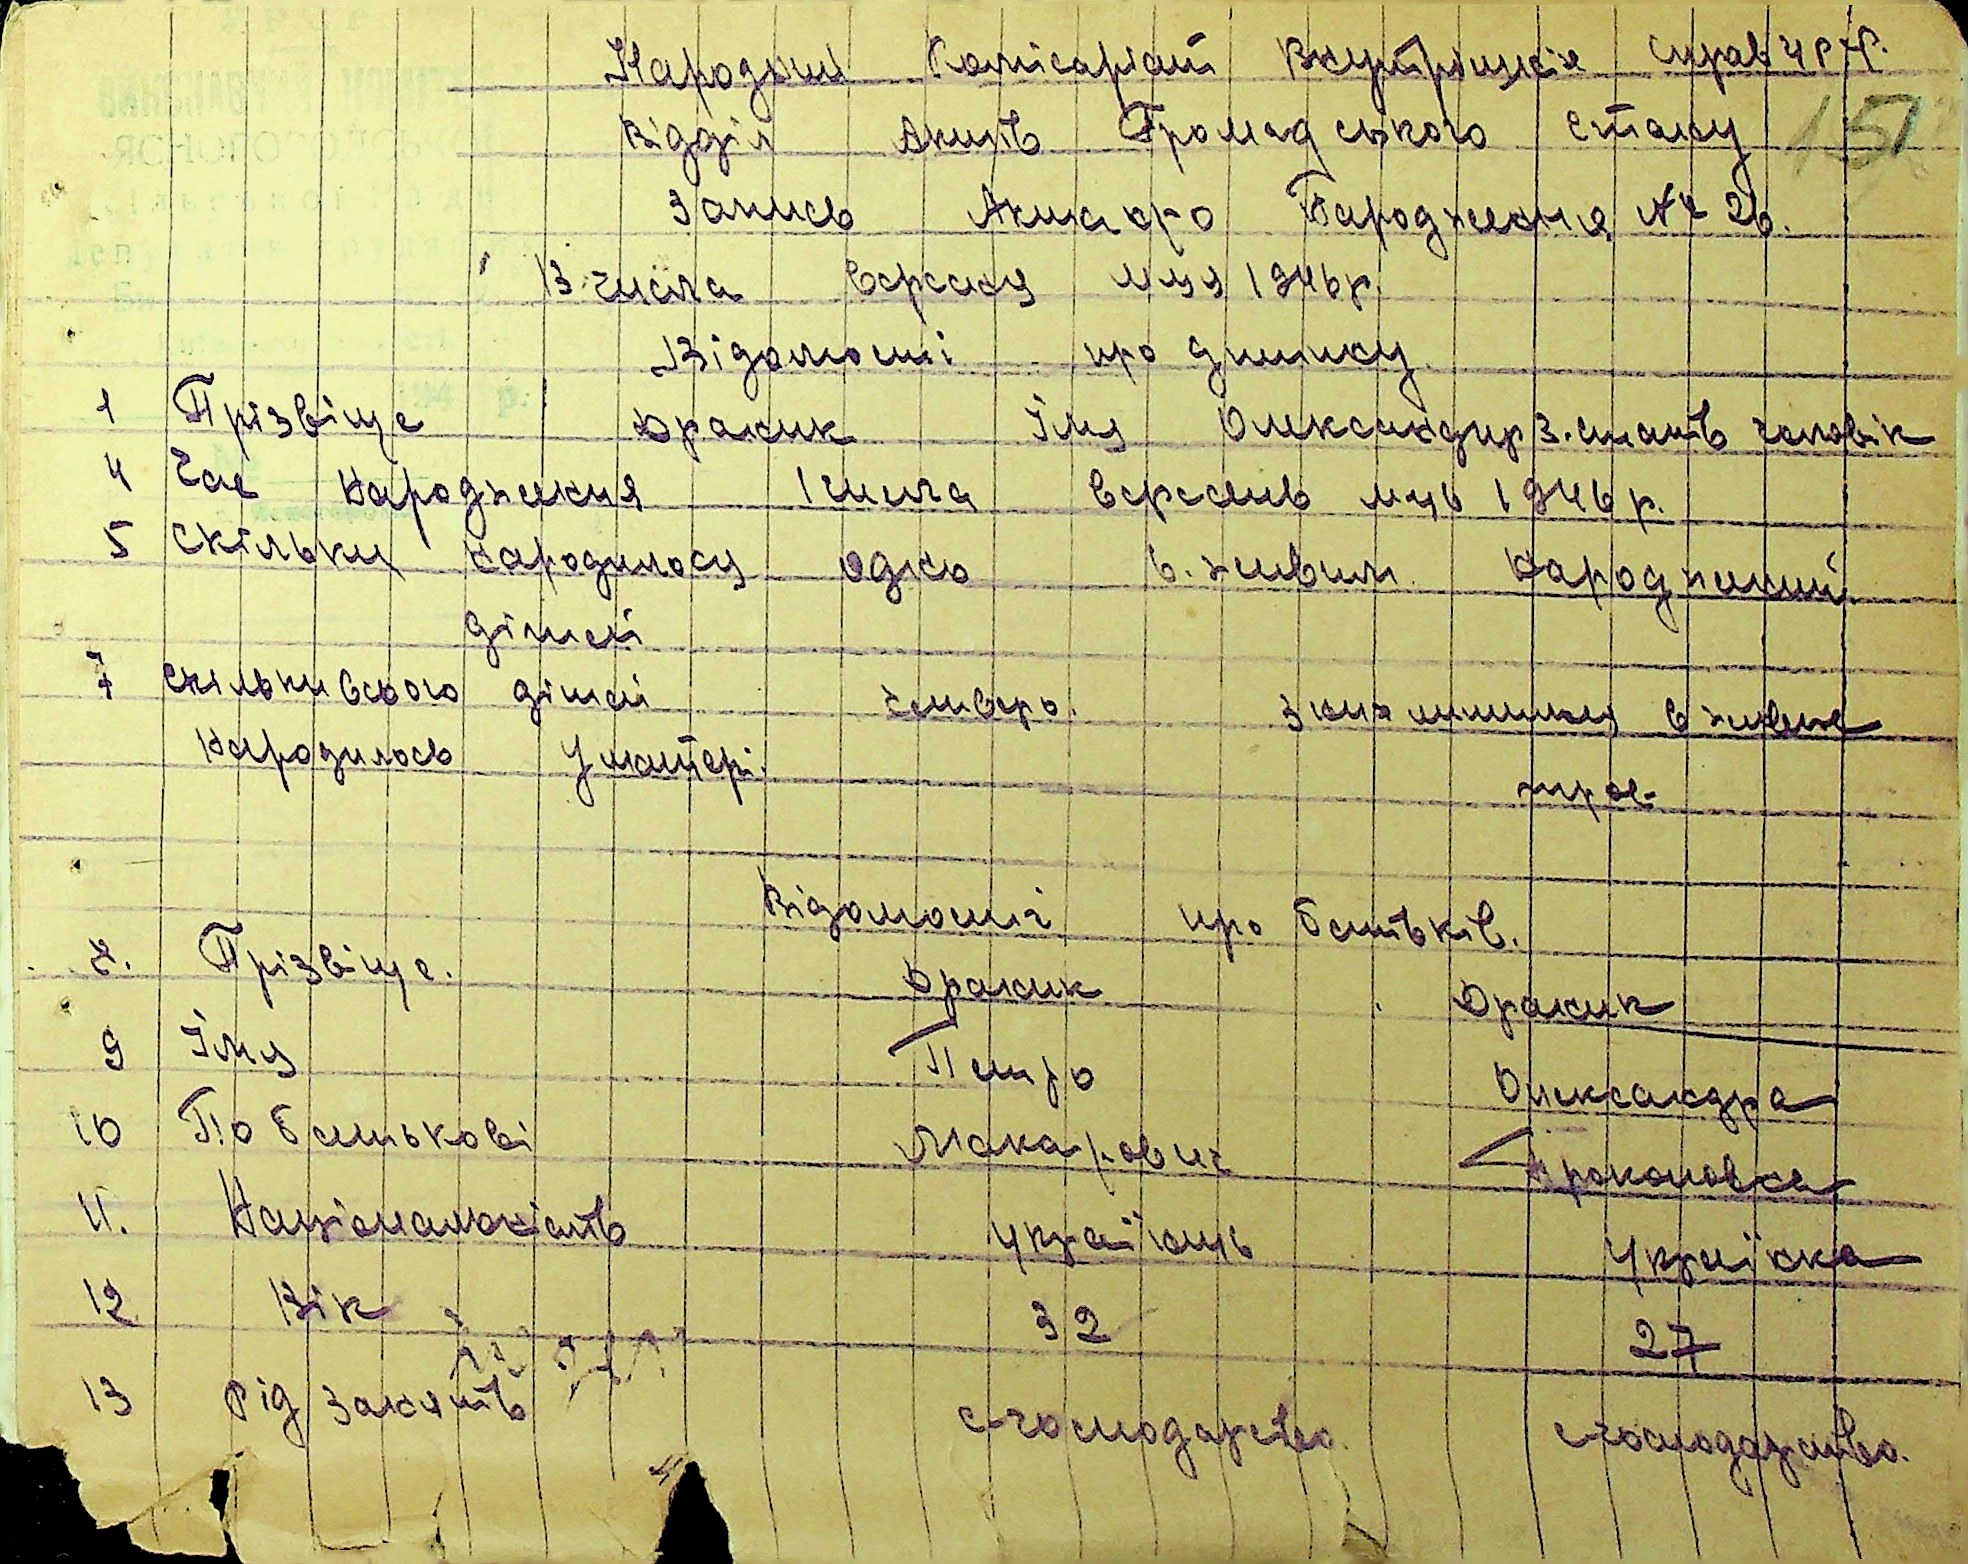 Народний Комісаріат Внутрішніх Справ УРСР.
151
Відділ Актів Громадського Стану
Запись Акта про Народження № 26.
13 числа вересня м-ця 1946 р.
Відомості про дитину.
1 Прізвіще Драник Імя Олександир 3. стать чоловік
4 Час народження 1 числа вересень м-ць 1946 р.
5 Скільки народилося одно 6. живим народжений.
дітей
7 Скільки всього дітей четверо. з них лишилися в живих
народилось У матері. трое-
Відомості про батьків.
8. Прізвіще. Драник Драник
9 Імя Петро Олександра
10 По батькові Макарович Прокоповна
11. Національність українць українка
12 Вік 32 27
13 Рід занять с-господарство. с-господарство.